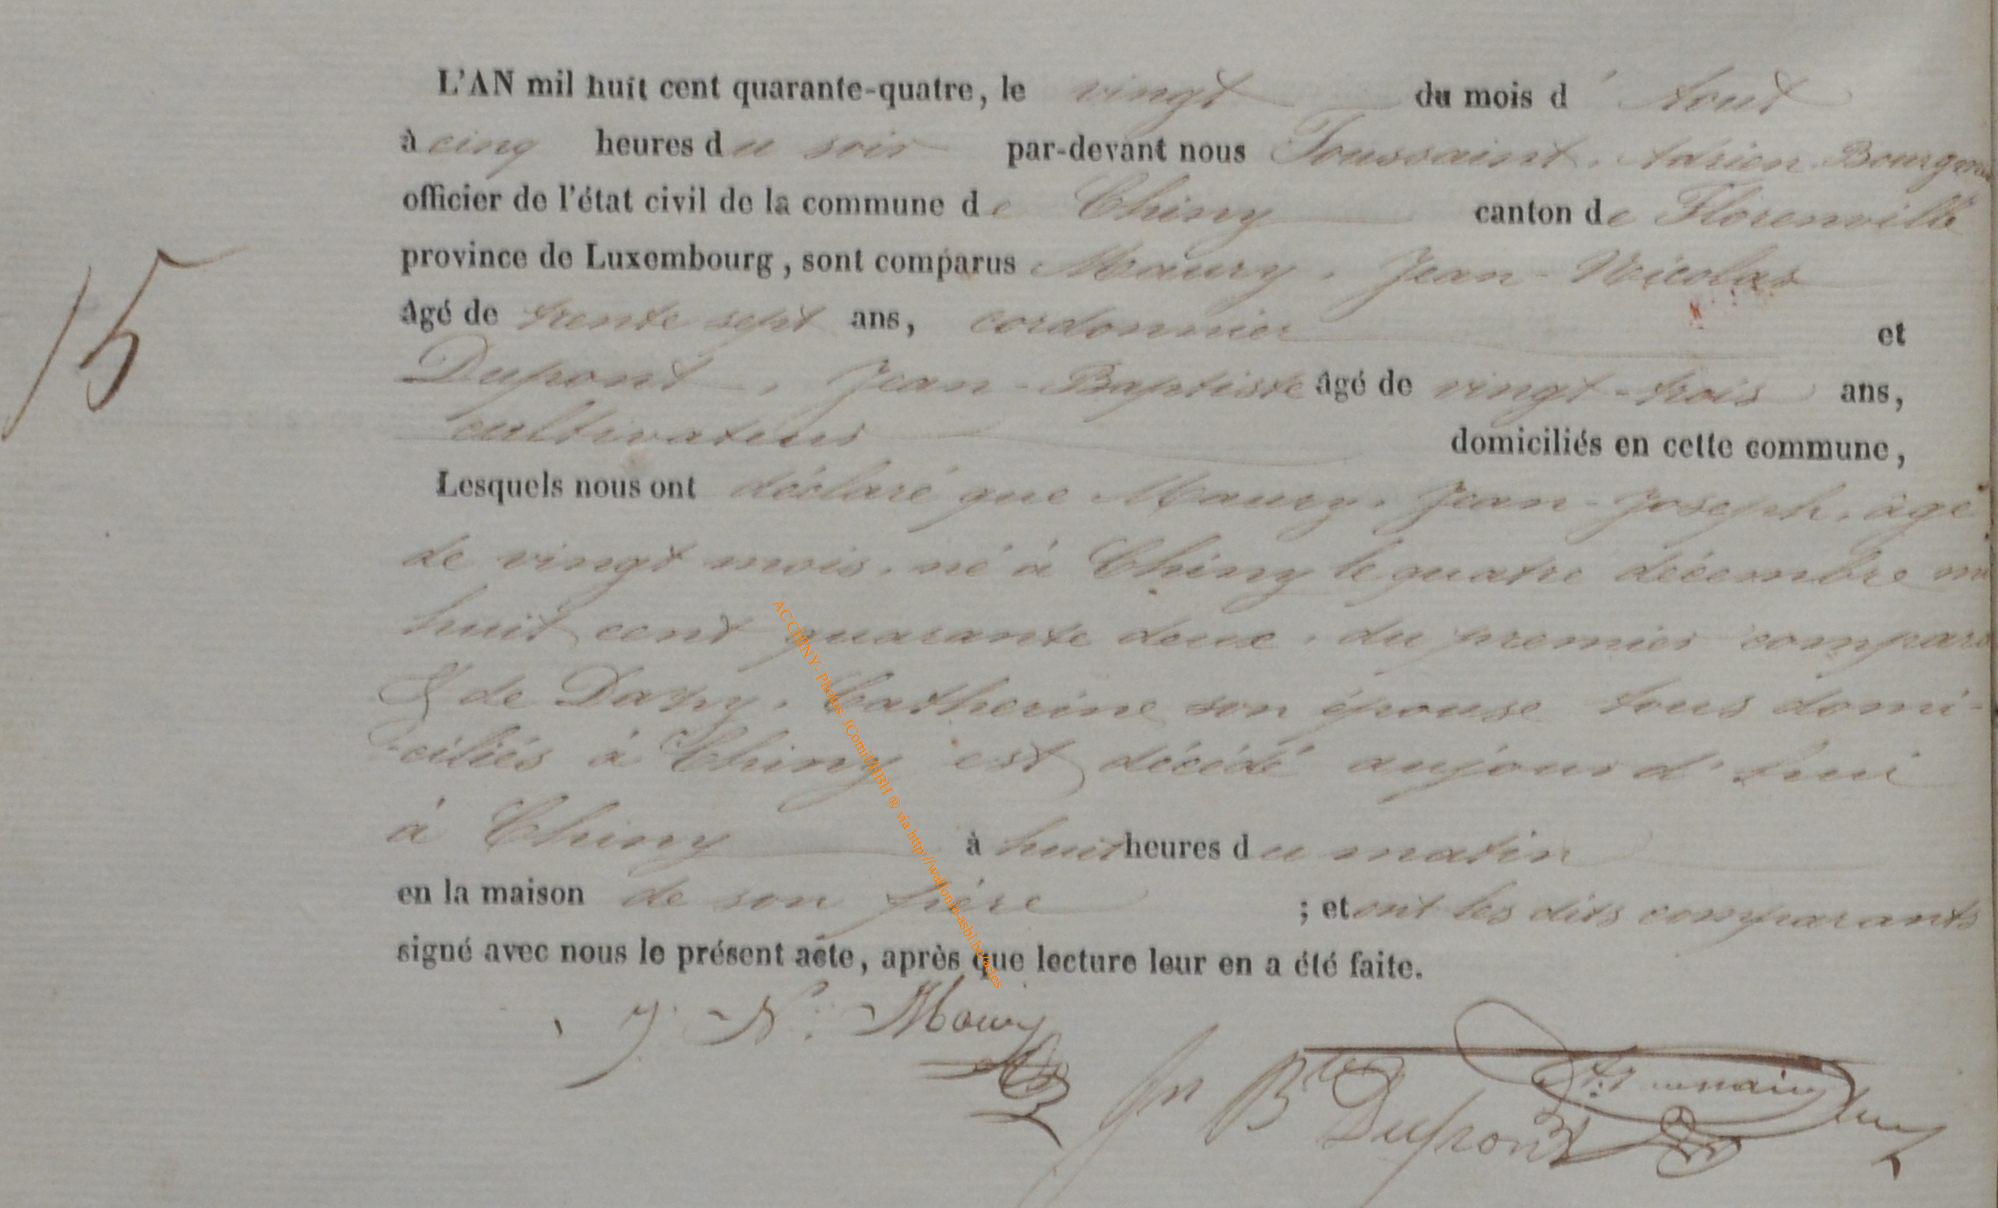 L'AN mil huit cent quarante-quatre, le vingt du mois d'Aout
à cinq heures du soir par-devant nous Toussaint, Adrien
officier de l'état civil de la commune de Chiny canton de Florenville
province de Luxembourg, sont comparus Maury, Jean-Nicolas
âgé de trente sept ans, cordonnier et
Dupont, Jean-Baptiste âgé de vingt-trois ans,
cultivateur domiciliés en cette commune,
15
Lesquels nous ont déclaré que Maury, Jean-Joseph, âgé
de vingt mois, né à Chiny le quatre décembre mil
huit cent quarante deux, du premier comparant
& de Catherine son épouse tous domi-
-ciliés à Chiny est décédé aujourd'hui
à Chiny à huit heures du matin
en la maison de son père ; et ont les dits comparants
signé avec nous le présent acte, après que lecture leur en a été faite.
J. N. Maury
Jn Bte Dupont
AC CHINY- Photos